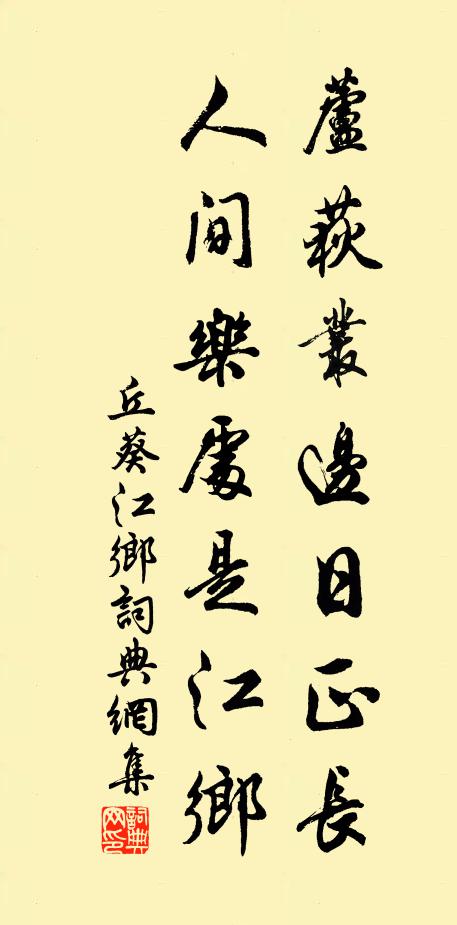 蘆荻叢邊日正長
人间樂處是江鄉
丘葵江鄉詞典網集
詞典
网印